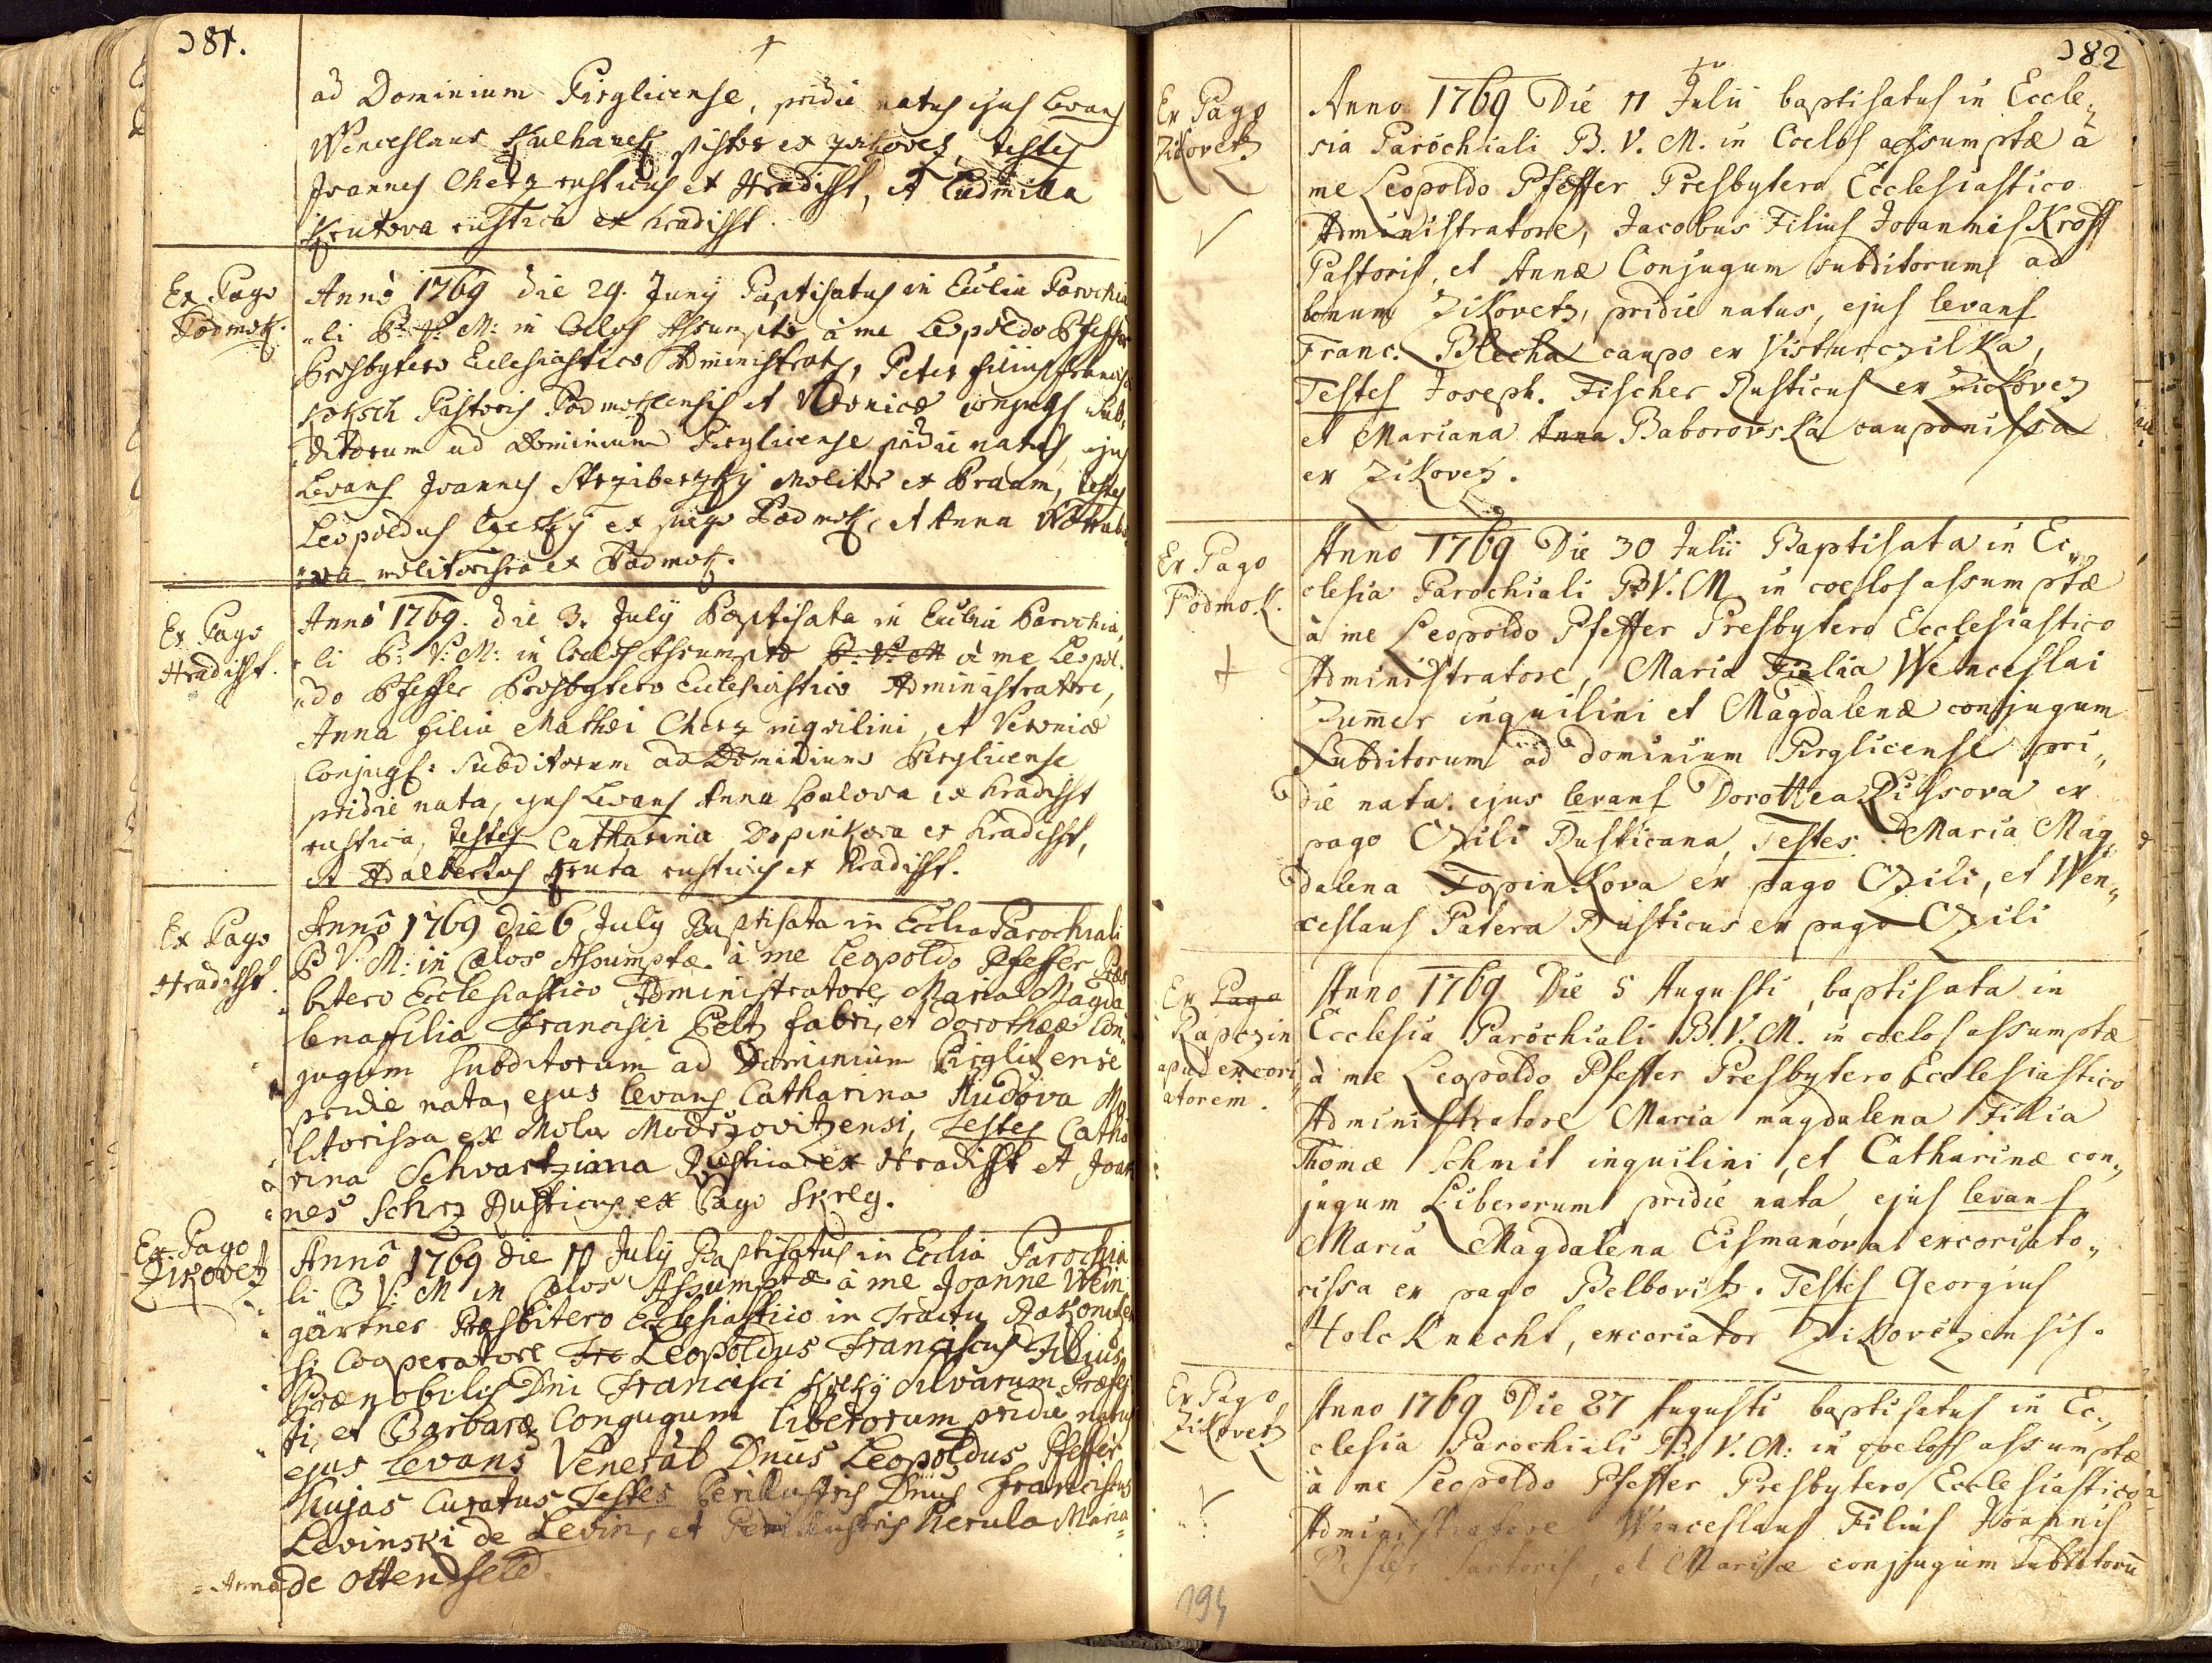 381.
ad Dominium Pirglicense, pridie natus ejus Levans
Wenceslaus Kulhanek pistor ex Zikovez, testes
Joannes Cherz rusticus ex Hradisst, et Ludmilla
Krutova rustica ex hradisst
Ex Pago
Podmok.
Anno 1769 die 29. Junij Baptisatus in Ecclia Parochia
li B: V: M: in Coelos Assumptae à me Leopoldo Pfeffer
Presbytero Ecclesiastico Administrat, Peter filius Francisci
Koksch Pastoris Podmoklensis et Veronicae conjugs sub
ditorum ad Dominium Pirglicense pridie natus, ejus
Levans Joannes Strziberzky Molitor ex Braum, testes
Leopoldus Czerky ex pago Podmok, et Anna
ova molitorissa ex Podmok.
Ex Pago
Hradisst.
Anno 1769. die 3. July Baptisata in Ecclia Parochia
li B: V: M: in Coelos Assumptae B: V: M à me Leopol
do Pfeffer Presbytero Ecclesiastico Administratore,
Anna filia Mathei Cherz inquilini, et Veronicae
Conjugs: Subditorum ad Dominium Pirglicense
pridie nata, ejus Levans Anna ex hradisst
rustica, testes Catharina Dopinkova ex hradisst,
et Adalbertus Kruta rusticus ex Hradisst.
Ex Pago
Hradisst.
Anno 1769 die 6 July Baptisata in Ecclia Parochiali
B V: M: in Caelos Assumptae à me Leopoldo Pfeffer Praes
bitero Ecclesiastico Administratore Maria Magda
lena filia Francisci Peltz fabri, et Dorotheae Con
jugum subditorum ad Dominium Pirglitzense
pridie nata, ejus levans Catharina Rudova Mo
litorissa ex Mola Modrzovitzensi, Testes Catha
rina Schvartziana Rustica ex Hradisst et Joan
nes Scherz Rusticus ex Pago Skreg.
Ex Pago
Zikovetz
Anno 1769 die 10 July Baptisatus in Ecclia Parochia
li B V: M in Caelos Assumptae à me Joanne Wein
gärtner Praesbitero Ecclesiastico in Tractu Rakonicen
si Cooperatore Fra Leopoldus Franciscus Filius
Praenobilis Dni Francisci Silvarum Praefec
ti, et Barbarae Congugum liberorum pridie natus
ejus levans Venerab Dnus Leopoldus Pfeffer
hujas Curatus Testes Perillustris Dnus Franciscus
Levinski de Levin, et Perillustris herula Maria
= Anna de Ottenfeld.
382
Ex Pago
Zikovetz
Anno 1769 Die 11 Julii baptisatus in Eccle
sia Parochiali B. V. M. in Coelos assumptae à
me Leopoldo Pfeffer Presbytero Ecclesiastico
Administratore, Jacobus Filius Joannis Kroff
Pastoris, et Annae Conjugum subditorum ad
bonum Zikovetz, pridie natus, ejus levans
Franc. Blecha caupo ex VisturczilKa,
Testes Joseph. Fischer Rusticus ex Zickovez
et Mariana Anna BaborovsKa cauponissa
ex ZiKovez.
Ex Pago
Podmok.
Anno 1769 Die 30 Julii Baptisata in Ec
clesia Parochiali B. V. M in coelos assumptae
à me Leopoldo Pfeffer Presbytero Ecclesiastico
Administratore, Maria Filia Wenceslai
Zum̅er inquilini et Magdalenae conjugum
Subditorum ad dominium Purglicense pri
die nata. ejus levans Dorothea ex
pago Czili Rusticana, Testes Maria Mag
dalena TopinKova ex pago Czili, et Wen
ceslaus Patera Rusticus ex pago Czili
Ex Pago
Rapczin
apud excori
atorem.
Anno 1769 Die 5 Augusti, baptisata in
Ecclesia Parochiali B. V. M. in coelos assumptae
à me Leopoldo Pfeffer Presbytero Ecclesiastico
Administratore Maria magdalena Filia
Thomae Schmit inquilini, et Catharinae con
jugum Liberorum pridie nata, ejus levans
Maria Magdalena Eismanova excoriato
rissa ex pago Belbovitz. Testes Georgius
Holc Knecht, excoriator ZiKovezensis.
Ex Pago
ZiKovetz
Anno 1769 Die 27 Augusti baptisatus in Ec
clesia Parochiali B. V. M: in coelos assumptae
à me Leopoldo Pfeffer Presbytero Ecclesiastico
Administratore Wenceslaus Filius Joannis
Sartoris, et Mariae conjugum Subditoru̅
194